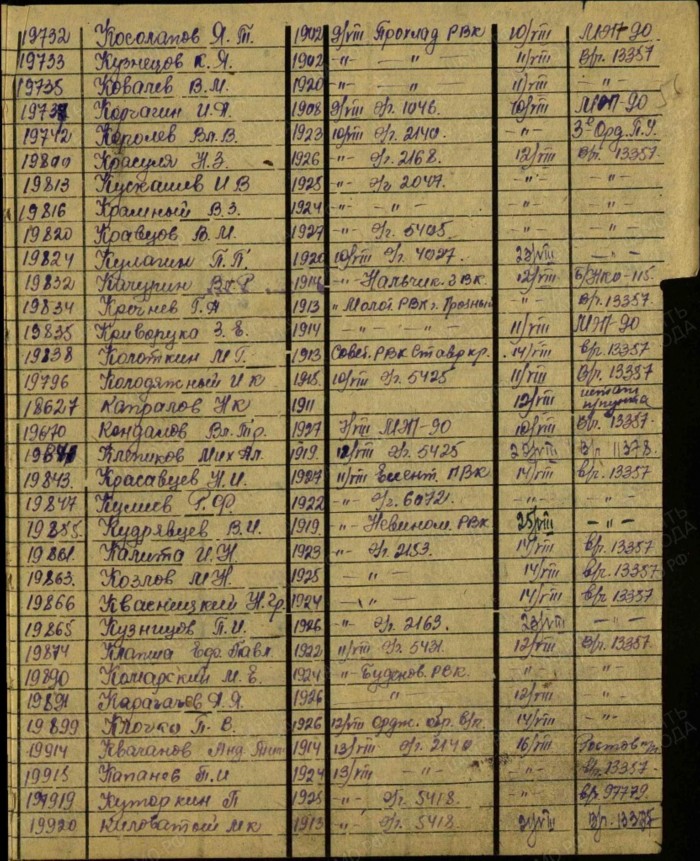 19732 Косолапов Я. Т. 1902 9/VIII Прохлад РВК 10/VIII МЭП-90
19733 Кузнецов К. Я. 1902 -"- -"- 11/VIII В/р. 13357
19735 Ковалев В. М. 1920 -"- 11/VIII -"-
1973 Корчагин И. А. 1908 9/VIII Э/г. 1046. 10/VIII МЭП-90
19742 Королев Вл. В. 1923 10/VIII Э/г. 2140. -"-
Красуля Н. З. 1926 -"- Э/г. 2168. 12/VIII В/р. 13357.
19813 И В 1925 -"- Э/г 2047. -"- -"-
19816 В. З. 1924 -"- -"- -"- -"-
19820 Кравцов В. М. 1927 -"- Э/г. 5405. -"- -"-
19824 Кулагин П. П. 1920 10/VIII Э/г. 4027. 23/VIII -"-
19832 Качурин 1914 -"- Нальчик. ВК. 12/VIII
19834 Г. А 1913 " Молот. РВК г. Грозный -"- В/р. 13357.
19835 Криворука З. Е. 1914 -"- -"- 11/VIII МЭП-90
19838 Колоткин М. Г. 1913 Совет. РВК Ставр кр. 14/VIII В/р. 13357
19796 Колодяжный И К 1925 10/VIII Э/г. 5425 11/VIII В/р. 13357
18627 Капралов Н К 1911 12/VIII
19670 Кондалов Вл. Гр. 1927 7/VIII МЭП-90 10/VIII В/р. 13357.
Клепиков Мих Ал. 1919. 12/VIII Э/г. 5425 25/VIII В/р. 11378.
19843. Красавцев Н. И. 1927 11/VIII РВК 14/VIII В/р. 13357
19847 Кушев Г. Ф. 1922 -"- Э/г. 6072. -"- -"-
19855. Кудрявцев В. И. 1919. -"- Невином. РВК 25/VIII -"-
19861. Калита И. Н 1923 -"- Э/г. 2153. 14/VIII В/р. 13357
19863. Козлов М Н. 1925 -"- 14/VIII В/р. 13357
19866 Квасницкий Н. Гр. 1924 -"- 14/VIII В/р. 13357
19865 Кузнецов П. И. 1926 -"- Э/г. 2163. 23/VIII -"-
19874 Клапша Еф. Павл. 1922 11/VIII Э/г. 5431. 12/VIII В/р. 13357.
19890 Комарский М. Е. 1924 -"- Буденов. РВК. -"- -"-
19891 Карагачев Я. Я. 1926 " 12/VIII -"-
19899 Клочко П. С. 1926 12/VIII Ордж. 14/VIII -"-
19914 Квачанов Анд. Ант. 1914 13/VIII Э/г. 2140 16/VIII Ростов
19915 Капанев П. И 1924 13/VIII -"- -"- В/р. 13357.
19919 Куторкин П 1925 -"- Э/г. 5418. -"- В/р. 97779.
19920 Киловатой М К 1913 -"- Э/г. 5418. 21/VIII